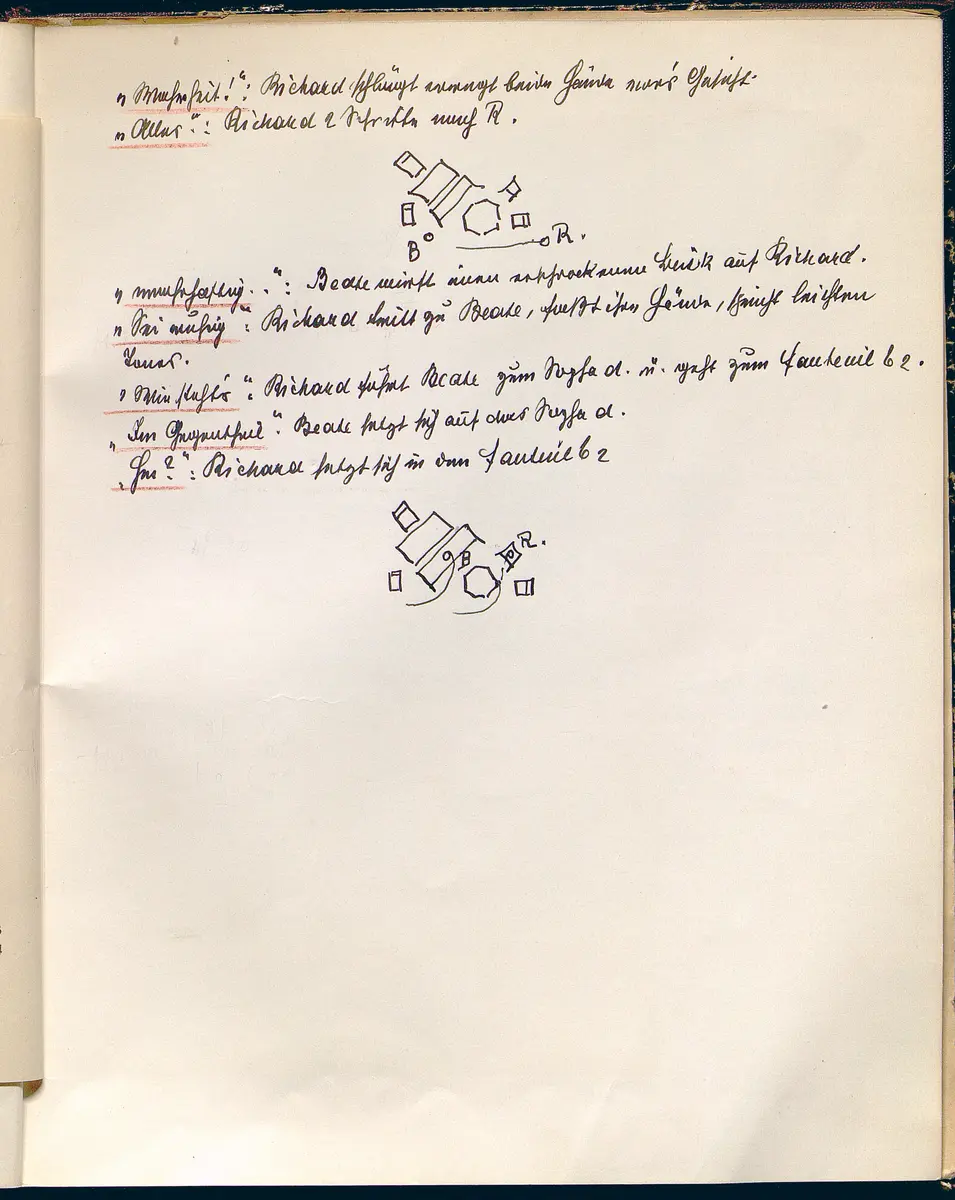 „Wahrheit!“: Richard schlägt erregt beide Hände vor's Gesicht.
„Alles“: Richard 2 Schritte nach R.
B R.
„wahrhaftig..“: Beate wirft einen erschrockenen Blick auf Richard.
„Sei ruhig“: Richard tritt zu Beate, faßt ihre Hände, leichten
Tones.
„Wie steht's“: Richard führt Beate zum Sopha d. u. geht zum Fauteuil b 2.
„Im Gegentheil“: Beate setzt sich auf das Sopha d.
Richard setzt sich in den Fauteuil b 2
B R.